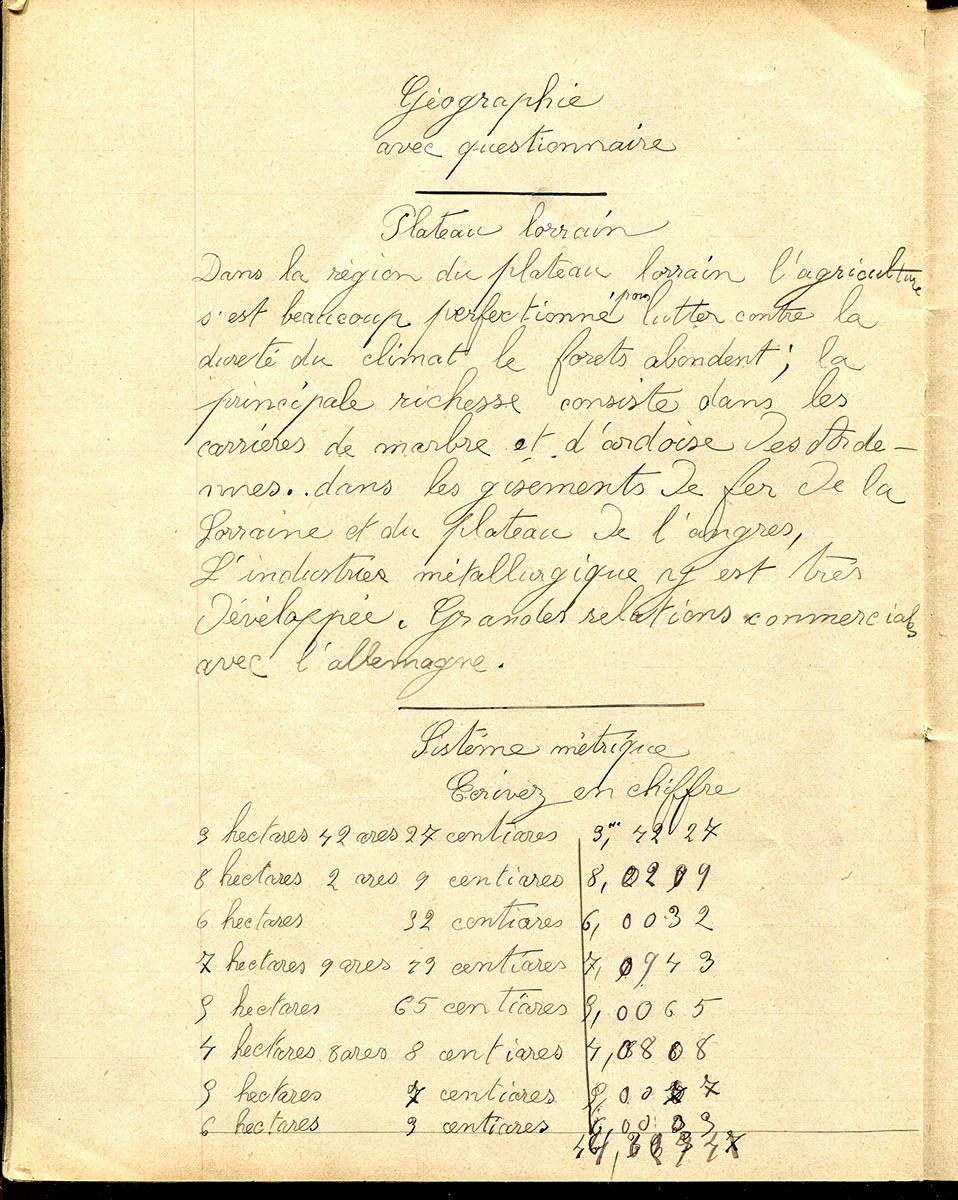 Géographie
avec questionnaire
Plateau lorrain
Dans la région du plateau lorrain l'agriculture
s'est beaucoup perfectionné pour lutter contre la
dureté du climat le forets abondent ; la
principale richesse consiste dans les
carrières de marbre et d'ardoise des Arde-
nnes.. dans les gisements de fer de la
Lorraine et du plateau de l'angres,
L'industries métallurgique y est très
Dévéloppée. Grandes relations commerciales
avec l'allemagne.
Sistème métrique
Ecrivez en chiffre
3 hectares 42 ares 27 centiares 3, 42 27
8 hectares 2 ares 9 centiares 8, 0209
6 hectares 32 centiares 6, 0032
7 hectares 9 ares 43 centiares 7, 0943
9 hectares 65 centiares 9, 0065
4 hectares 8 ares 8 centiares 4, 0808
9 hectares 7 centiares 9, 0007
6 hectares 3 centiares 6, 0003